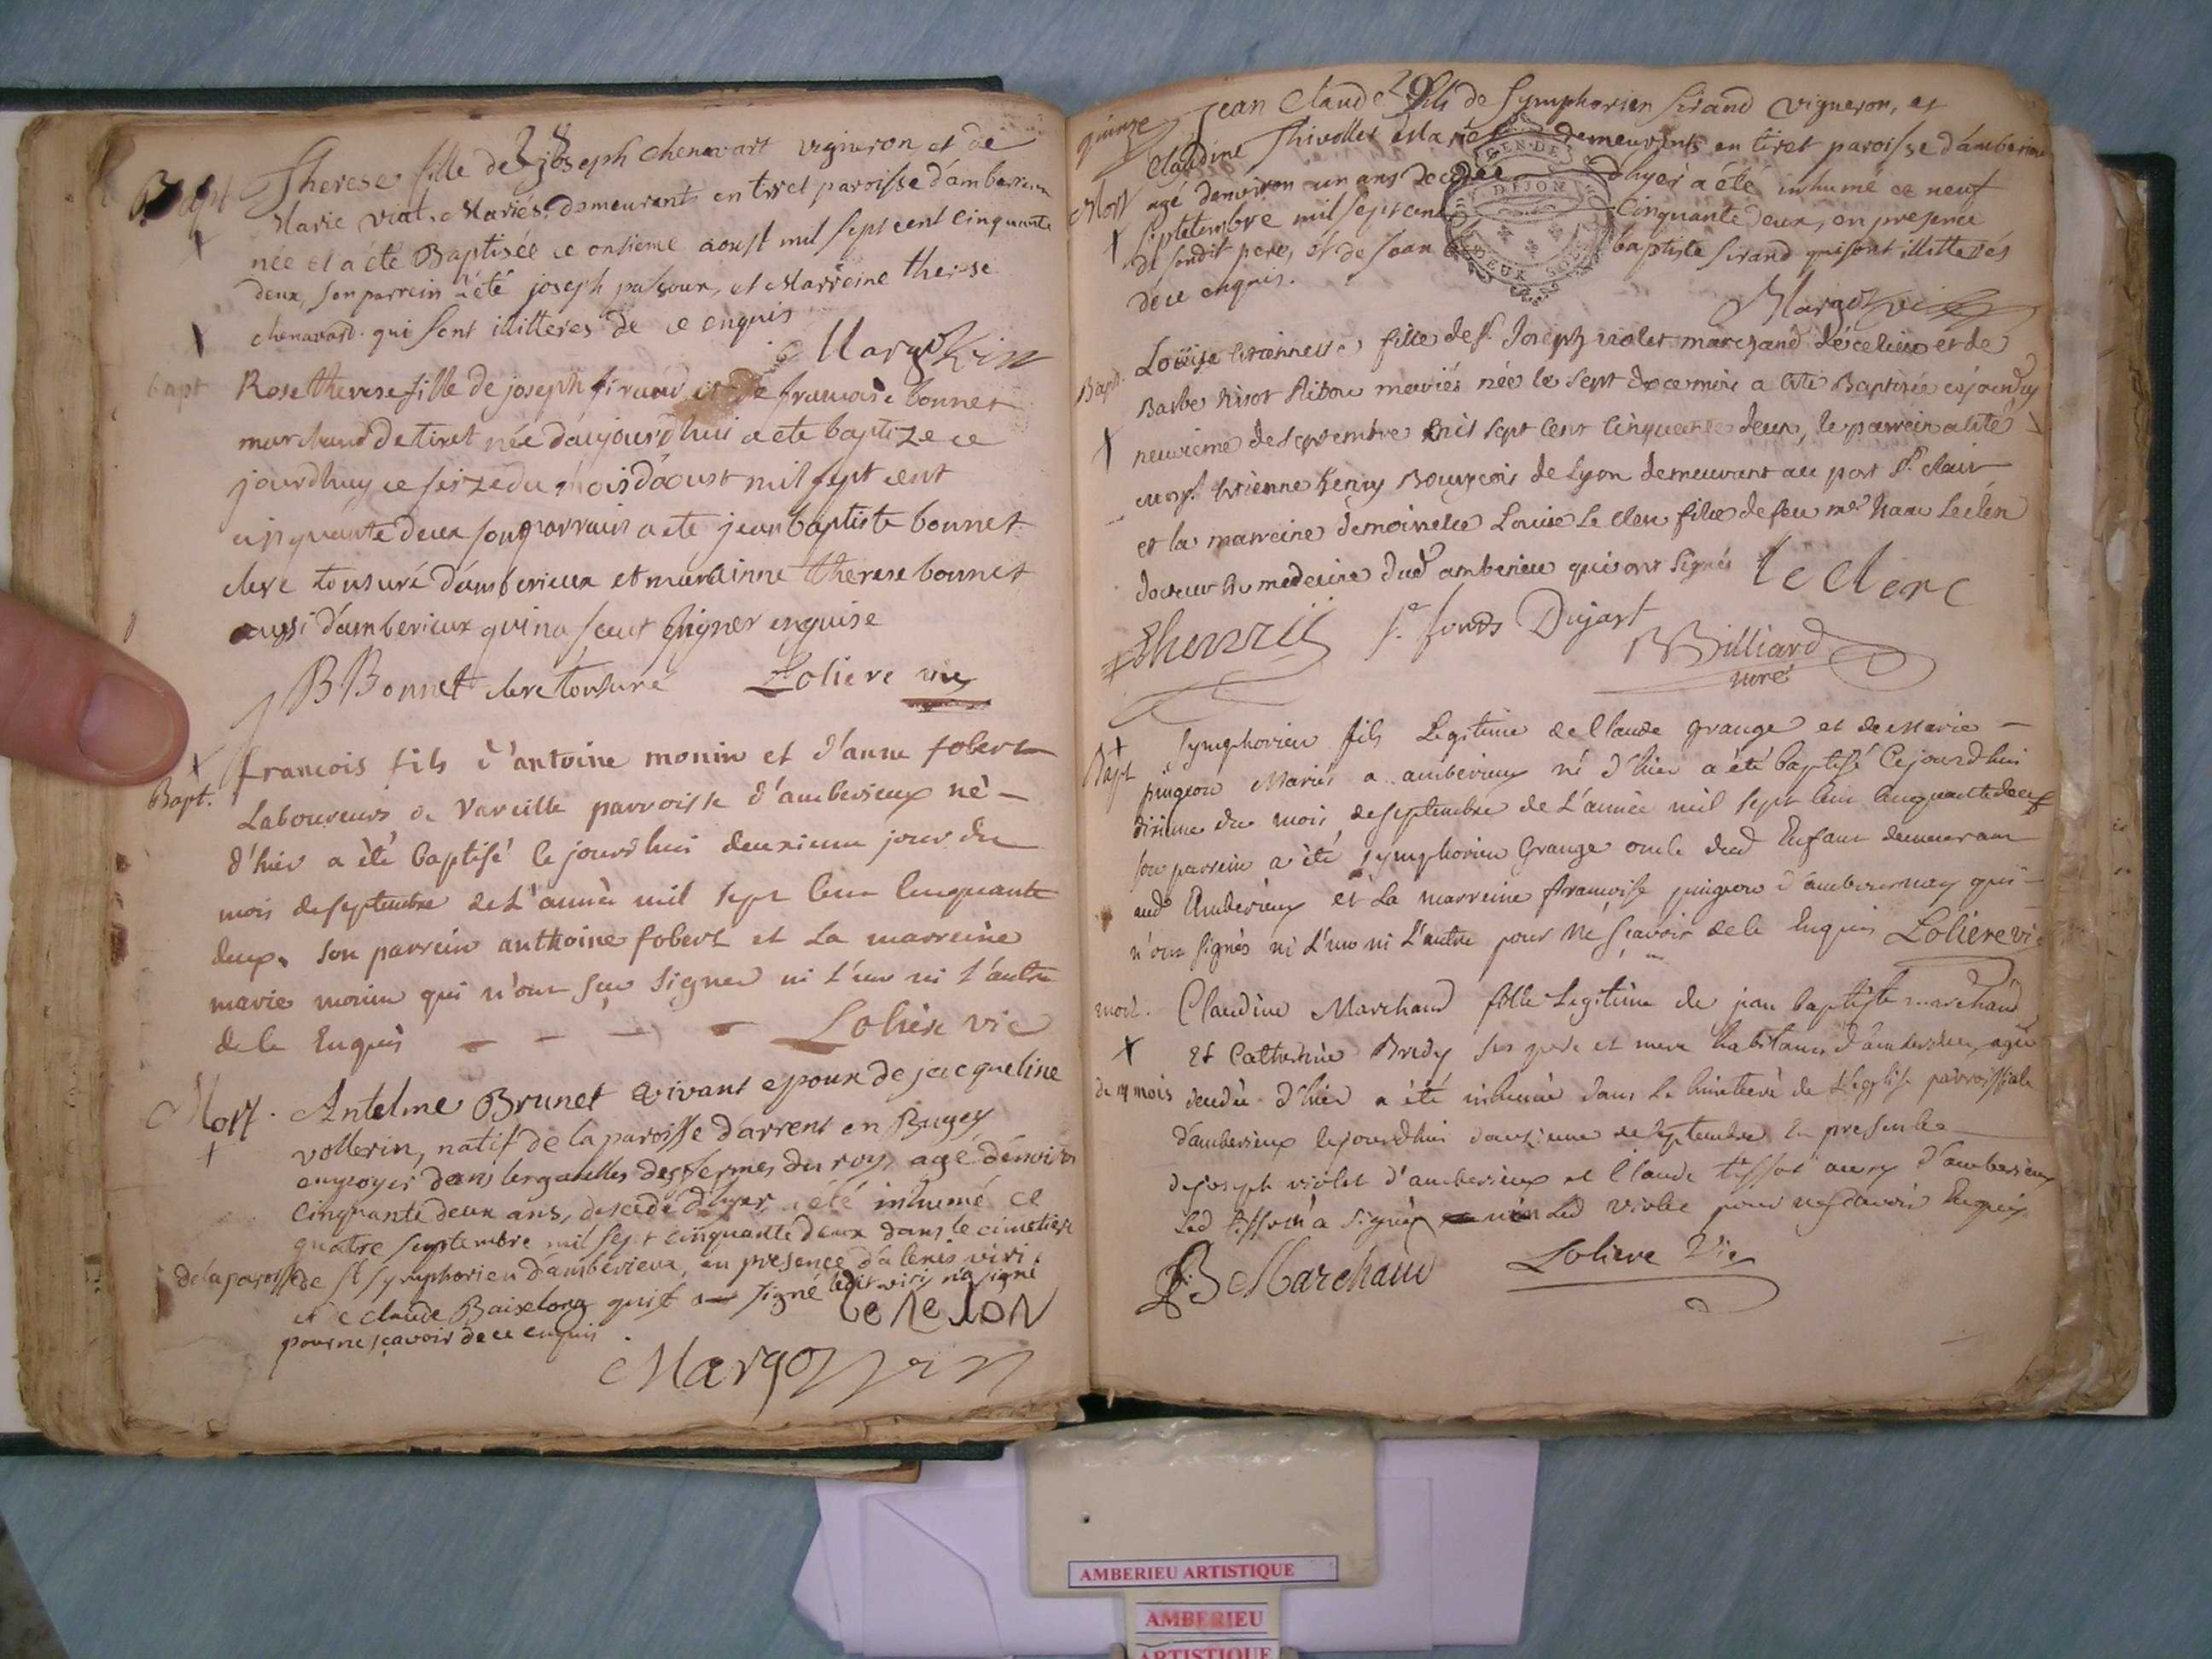 28
Bapt Therese fille de joseph Chenavart vigneron et de
Marie viat Mariés demeurants en tiret paroisse d'amberieux
née et a été Baptisée ce onsieme aoust mil sept cent cinquante
deux, son parrein a été joseph et Marreine therese
chenavart qui sont illitteres de ce enquis
Margo vic
bapt Rose therese fille de joseph siraud et de francoise bonnet
marchand de tiret née d'aujourd'hui a ete baptize ce
jourdhuy ce seize du mois d'aoust mil sept cent
cinquante deux son parrain a ete jean baptiste bonnet
clerc tonsuré d'amberieux et maraine therese bonnet
aussi d'amberieux qui na sceut signer enquise
B Bonnet clere tonsuré Loliere vic
francois fils d'antoine monin et d'anne fobert
Bapt. Laboureurs de Vareille parroisse d'amberieux né
d'hier a été baptisé Cejourdhui deuxieme jour du
mois de septembre de L'année mil sept Cent Cinquante
deux. son parrein anthoine fobert et La marreine
marie monin qui n'ont sçu signer ni L'un ni L'autre
de Ce Enquis Loliere vic
Mort. Antelme Brunet vivant epoux de jacqueline
vollerin, natif de la paroisse d'arrent en Bugey
employé dans les gabelles des fermes du roy, agé d'environ
Cinquante deux ans, decedé d'hyer a été inhumé ce
quatre septembre mil sept cinquante deux dans le cimetiere
de la paroisse de St symphorien d'amberieux, en presence d'alexis viri
et de claude Baiselong qui a signé ledit viri n'a signé
pour ne sçavoir de ce enquis
Margo vic
29
quinze Jean Claude fils de Symphorien Sirand vigneron, et
Claudine Thivollet Mariés demeurants en tiret paroisse d'amberieux
Mort agé d'environ un ans decedé d'hyer a été inhumé ce neuf
Septembre mil sept cent Cinquante deux, en presence
de sondit pere, et de Jean baptiste Sirand qui sont illitterés
de ce enquis.
GEN. DE DIJON
DEUX SOLS
Margo vic
Bapt. Loüise Etiennette fille de Sr. Joseph violet marchand de ce lieu et de
Barbe mariés née le sept de ce mois a été Baptisée cejourdhuy
neuvieme de septembre mil sept Cent Cinquante deux, le parrein a été
Etienne henry Bourgeois de Lyon demeurant au port St. clair
et la marreine demoiselle Louise Le Clerc fille de feu me Leclerc
docteur en medecine dud amberieu qui ont signés
le clerc
Ehenry Dujart
BBilliard
curé
Bapt Symphorien fils Legitime de Claude grange et de Marie
pingeon Mariés a amberieux né d'hier a été baptisé Cejourdhui
dixieme du mois de septembre de L'année mil sept Cent Cinquante deux
son parrein a été symphorien Grange oncle dud Enfant demeurant
aud Amberieux et La marreine francoise pingeon d'ambournay qui
n'ont signés ni L'un ni L'autre pour ne sçavoir de Ce Enquis Loliere vic
mort. Claudine Marchand fille Legitime de jean baptiste marchand
Et Catherine Bredy ses pere et mere habitants d'amberieu, agée
de 4 mois decedée d'hier a été inhumée dans Le Cimetiere de L'eglise parroissiale
d'amberieux Cejourdhui de septembre En presence
de joseph violet d'amberieux et Claude tissot aussy d'amberieux
Led tissot a signé non Led violet pour ne sçavoir Enquis
JB Marchand Loliere Vic
AMBERIEU ARTISTIQUE
AMBERIEU
ARTISTIQUE